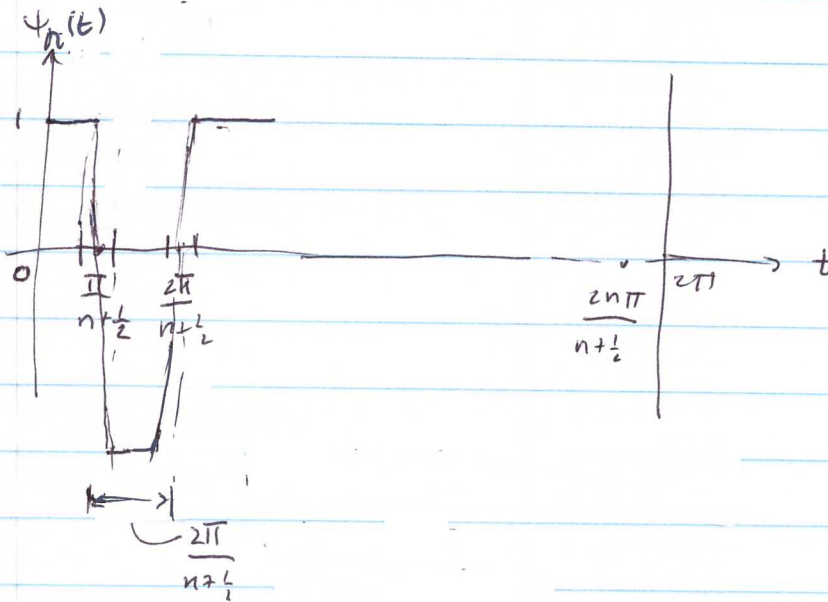 ψn(t)
1
0
π/(n+½)
2π/(n+½)
2nπ/(n+½)
2π
t
2π/(n+½)